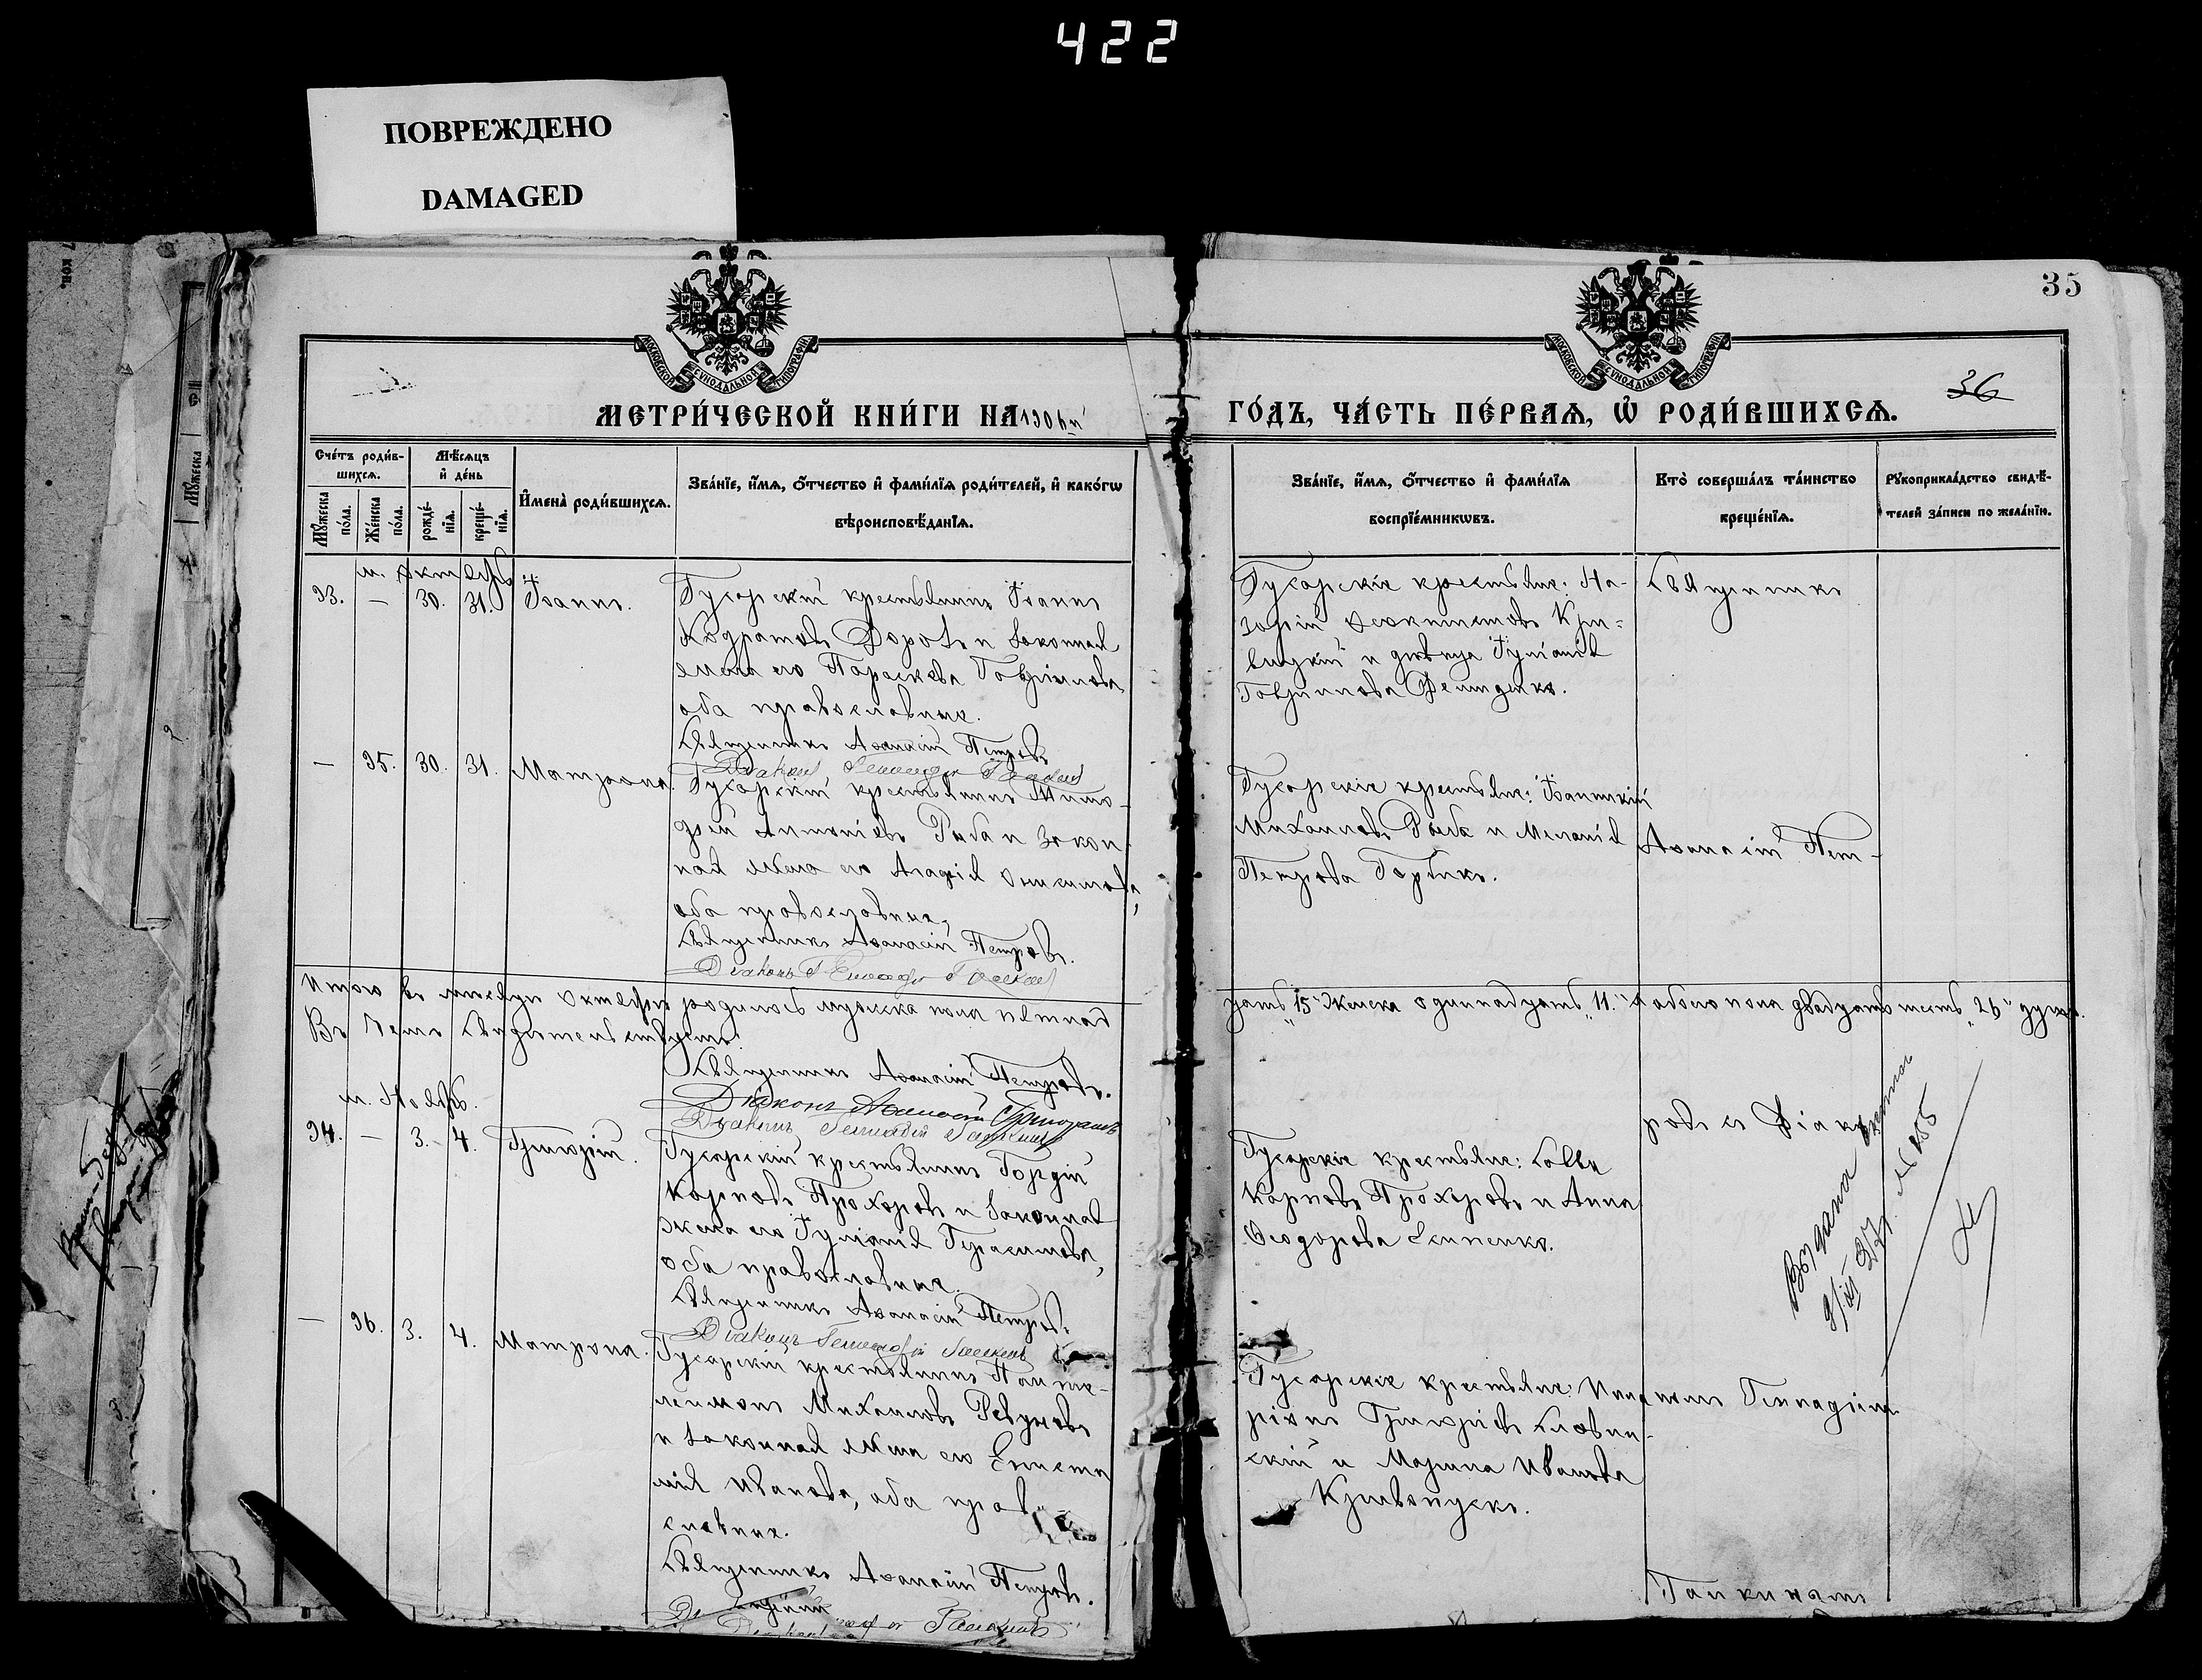 422
ПОВРЕЖДЕНО
DAMAGED
7 коп.
35
36
МОСКОВСКОЙ СѴНОДАЛЬНОЙ ТИПОГРАФІИ
МОСКОВСКОЙ СѴНОДАЛЬНОЙ ТИПОГРАФІИ
МЕТРИ́ЧЕСКОЙ КНИ́ГИ НА 1904й
ГО́ДЪ, ЧА́СТЬ ПЕ́РВАѦ, Ѡ҆ РОДИ́ВШИХСѦ.
Сче́тъ роди́в-
шихсѧ.
Мꙋ́жеска
по́ла.
Же́нска
по́ла.
Мѣ́сѧцъ
и҆ де́нь
рожде́-
нїѧ.
креще́-
нїѧ.
И҆мена̀ роди́вшихсѧ.
Зва́нїе, и҆́мѧ, ѻ҆́тчество и҆ фами́лїѧ роди́телей, и҆ како́гѡ
вѣроисповѣ́данїѧ.
Зва́нїе, и҆́мѧ, ѻ҆́тчество и҆ фами́лїѧ
воспрїе́мникѡвъ.
Кто̀ соверша́лъ та́инство
креще́нїѧ.
Рꙋкоприкла́дство свидѣ́-
телей за́писи по жела́нїю.
м. Октябрь
93. — 30. 31. Іоаннъ.
Гусарскій крестьянинъ Іоаннъ
Кодратовъ Доровъ и законная
жена его Параскева Гавріилова
оба православные.
Священникъ Аѳанасій Петровъ
Діаконъ Геннадій
Гусарскіе крестьяне: На-
зарій Ѳеоктистовъ Кри-
вицкій и дѣвица Іуліанія
Гавриилова Демиденко.
Священникъ
— 95. 30. 31. Матрона.
Гусарскій крестьянинъ Тимо-
фей Антоніевъ Рыба и закон-
ная жена его Агафія Онисимова,
оба православные,
Священникъ Аѳанасій Петровъ.
Діаконъ Геннадій
Гусарскіе крестьяне: Іоанникій
Михаиловъ Рыба и Меланія
Петрова Горбикъ.
Аѳанасій Пет-
Итого въ мѣсяцѣ Октябрѣ родилось мужска пола пятнад
цать "15" Женска одиннадцать "11." а обоего пола двадцать шесть "26" душъ.
Въ чемъ свидѣтельствуетъ:
Священникъ Аѳанасій Петровъ.
Діаконъ
Діаконъ Геннадій
м. Ноябрь.
94. — 3. 4. Григорій.
Гусарскій крестьянинъ Гордій
Карповъ Прохоровъ и законная
жена его Іуліанія Герасимова,
оба православные.
Священникъ Аѳанасій Петровъ.
Діаконъ Геннадій
Гусарскіе крестьяне: Савва
Карповъ Прохоровъ и Анна
Ѳеодорова Есипенко.
ровъ съ Діако
Выдана
№ 155
— 96. 3. 4. Матрона.
Гусарскій крестьянинъ Панте-
леимонъ Михаиловъ Ревуновъ
и законная жена его Еписти
мія Иванова, оба право
славные.
Священникъ Аѳанасій Петровъ.
Гусарскіе крестьяне: Илла
ріонъ Григоріевъ Словин-
скій и Марина Иванова
Кривопускъ.
номъ Геннадіемъ
Галкинымъ